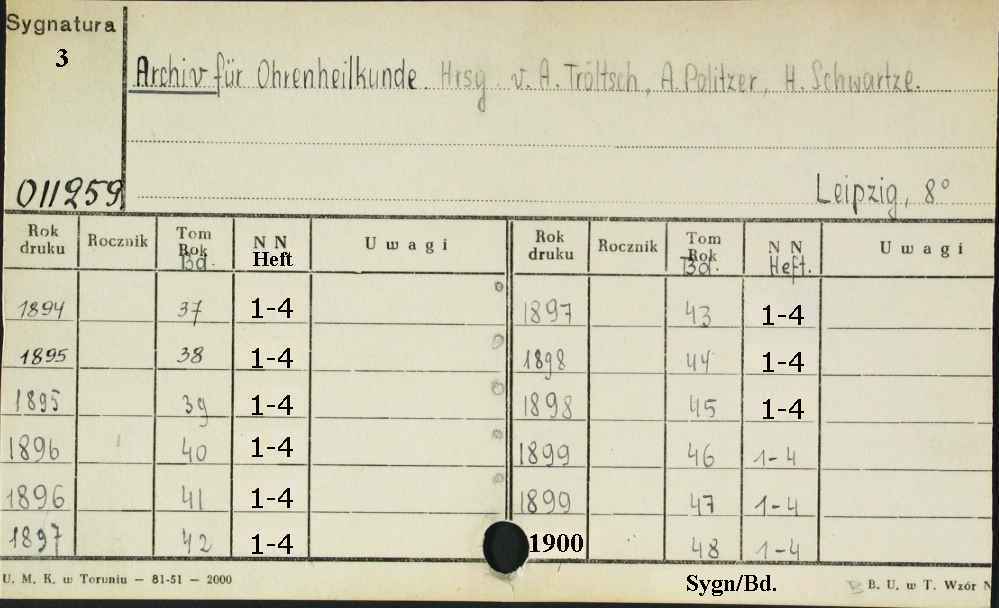 Sygnatura
3
Archiv für Ohrenheilkunde. Hrsg. v. A. Tröltsch, A. Politzer, H. Schwartze.
011259
Leipzig, 8°
Rok druku Rocznik Tom Rok Bd. NN Heft Uwagi Rok druku Rocznik Tom Rok Bd. NN Heft. Uwagi
1894 37 1-4 1897 43 1-4
1895 38 1-4 1898 44 1-4
1895 39 1-4 1898 45 1-4
1896 40 1-4 1899 46 1-4
1896 41 1-4 1899 47 1-4
1897 42 1-4 1900 48 1-4
U. M. K. w Toruniu — 81-51 — 2000 Sygn/Bd. B. U. w T. Wzór